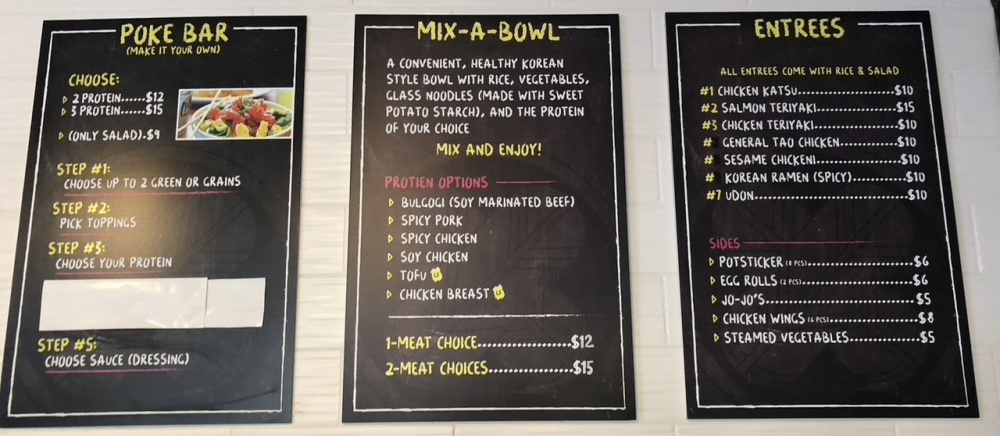 POKE BAR
(MAKE IT YOUR OWN)
CHOOSE:
2 PROTEIN......$12
3 PROTEIN......$15
(ONLY SALAD).$9
STEP #1:
CHOOSE UP TO 2 GREEN OR GRAINS
STEP #2:
PICK TOPPINGS
STEP #3:
CHOOSE YOUR PROTEIN
STEP #5:
CHOOSE SAUCE (DRESSING)
MIX-A-BOWL
A CONVENIENT, HEALTHY KOREAN
STYLE BOWL WITH RICE, VEGETABLES,
GLASS NOODLES (MADE WITH SWEET
POTATO STARCH), AND THE PROTEIN
OF YOUR CHOICE
MIX AND ENJOY!
PROTIEN OPTIONS
BULGOGI (SOY MARINATED BEEF)
SPICY PORK
SPICY CHICKEN
SOY CHICKEN
TOFU
CHICKEN BREAST
1-MEAT CHOICE....................$12
2-MEAT CHOICES.................$15
ENTREES
ALL ENTREES COME WITH RICE & SALAD
#1 CHICKEN KATSU....................$10
#2 SALMON TERIYAKI.................$15
#3 CHICKEN TERIYAKI.................$10
# GENERAL TAO CHICKEN............$10
# SESAME CHICKENI..................$10
# KOREAN RAMEN (SPICY)..........$10
#7 UDON................................$10
SIDES
POTSTICKER (8 PCS)....................$6
EGG ROLLS (2 PCS).....................$6
JO-JO'S..............................$5
CHICKEN WINGS (6 PCS)................$8
STEAMED VEGETABLES................$5